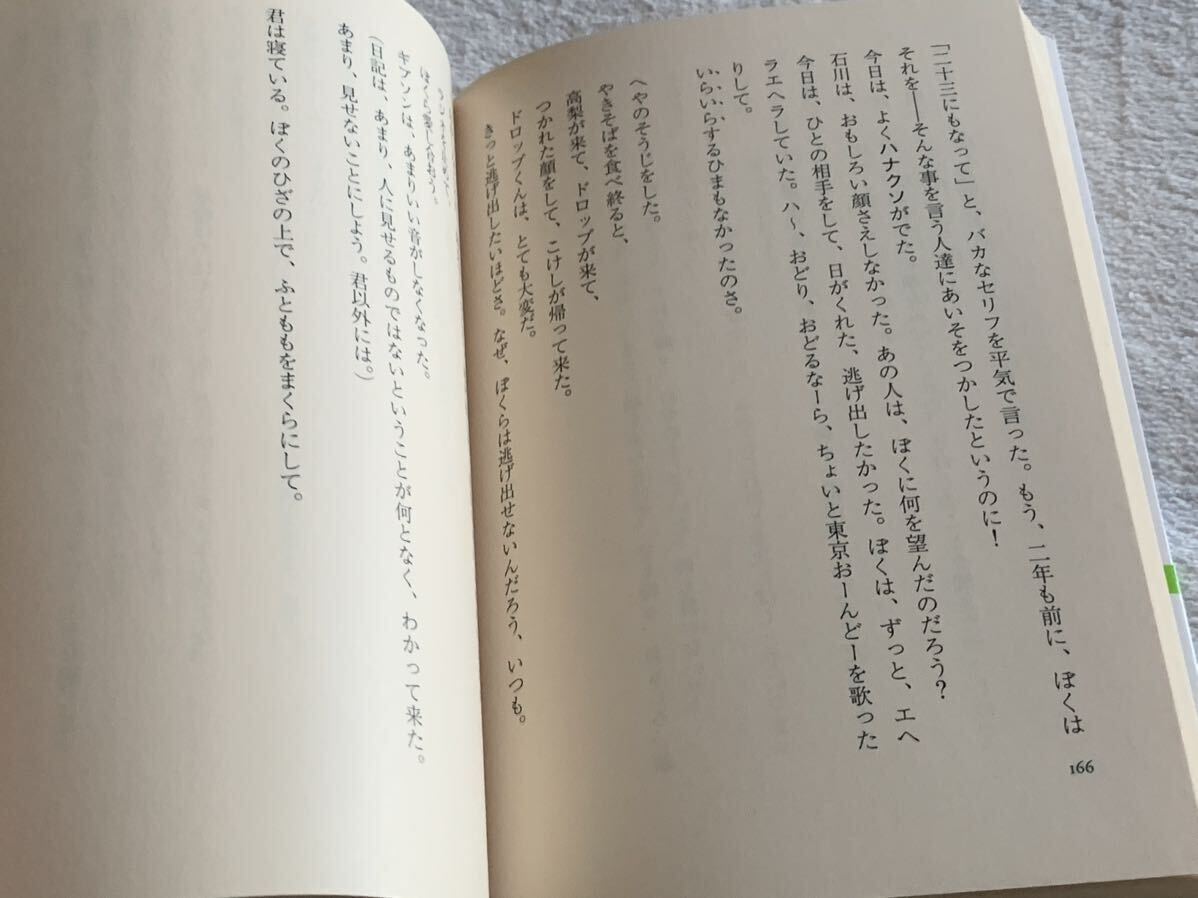 「二十三にもなって」と、バカなセリフを平気で言った。もう、二年も前に、ぼくは
それを――そんな事を言う人達にあいそをつかしたというのに！
今日は、よくハナクソがでた。
石川は、おもしろい顔さえしなかった。あの人は、ぼくに何を望んだのだろう？
今日は、ひとの相手をして、日がくれた、逃げ出したかった。ぼくは、ずっと、エヘ
ラエヘラしていた。ハ～、おどり、おどるなーら、ちょいと東京おーんどーを歌った
りして。
いらいらするひまもなかったのさ。
へやのそうじをした。
やきそばを食べ終ると、
高梨が来て、ドロップが来て、
つかれた顔をして、こけしが帰って来た。
ドロップくんは、とても大変だ。
きっと逃げ出したいほどさ。なぜ、ぼくらは逃げ出せないんだろう、いつも。
166
ぼくら愛し合おう。
ギブソンは、あまりいい音がしなくなった。
（日記は、あまり、人に見せるものではないということが何となく、わかって来た。
あまり、見せないことにしよう。君以外には。）
君は寝ている。ぼくのひざの上で、ふとももをまくらにして。